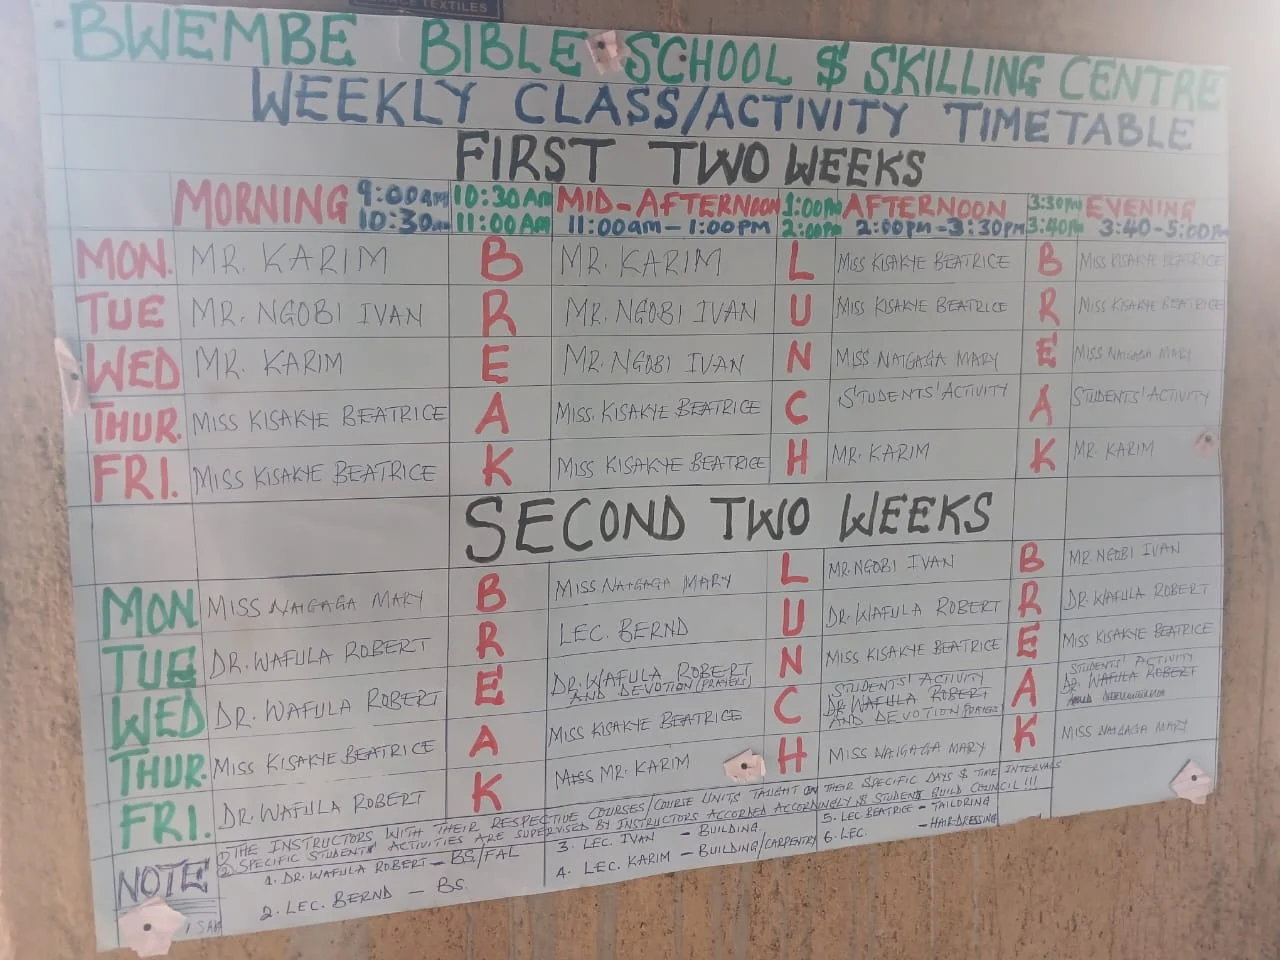 TEXTILES
BWEMBE BIBLE SCHOOL $ SKILLING CENTRE
WEEKLY CLASS/ACTIVITY TIMETABLE
FIRST TWO WEEKS
MORNING 9:00am 10:30am 10:30Am 11:00Am MID-AFTERNOON 11:00am-1:00PM 1:00Pm 2:00Pm AFTERNOON 2:00PM-3:30PM 3:30pm 3:40pm EVENING 3:40-5:00Pm
MON. MR. KARIM B MR. KARIM L MISS KISAKYE BEATRICE B MISS KISAKYE BEATRICE
TUE MR. NGOBI IVAN R MR. NGOBI IVAN U MISS KISAKYE BEATRICE R MISS KISAKYE BEATRICE
WED MR. KARIM E MR. NGOBI IVAN N MISS NAIGAGA MARY E MISS NAIGAGA MARY
THUR. MISS KISAKYE BEATRICE A MISS. KISAKYE BEATRICE C STUDENTS' ACTIVITY A STUDENTS' ACTIVITY
FRI. MISS KISAKYE BEATRICE K MISS KISAKYE BEATRICE H MR. KARIM K MR. KARIM
SECOND TWO WEEKS
MON MISS NAIGAGA MARY B MISS NAIGAGA MARY L MR. NGOBI IVAN B MR. NGOBI IVAN
TUE DR. WAFULA ROBERT R LEC. BERND U DR. WAFULA ROBERT R DR. WAFULA ROBERT
WED DR. WAFULA ROBERT E DR. WAFULA ROBERT AND DEVOTION (PRAYERS) N MISS KISAKYE BEATRICE E MISS KISAKYE BEATRICE
THUR. MISS KISAKYE BEATRICE A MISS KISAKYE BEATRICE C STUDENTS' ACTIVITY DR. WAFULA ROBERT AND DEVOTION (PRAYERS) A STUDENTS' ACTIVITY DR. WAFULA ROBERT
FRI. DR. WAFULA ROBERT K MISS MR. KARIM H MISS NAIGAGA MARY K MISS NAIGAGA MARY
NOTE
1) THE INSTRUCTORS WITH THEIR RESPECTIVE COURSES/COURSE UNITS TAUGHT ON THEIR SPECIFIC DAYS $ TIME INTERVALS
2) SPECIFIC STUDENTS' ACTIVITIES ARE SUPERVISED BY INSTRUCTORS ACCORDED ACCORDINGLY $ STUDENT BUILD COUNCIL !!!
1. DR. WAFULA ROBERT - BS/FAL
2. LEC. BERND - BS
3. LEC. IVAN - BUILDING
4. LEC. KARIM - BUILDING/CARPENTRY
5. LEC. BEATRICE - TAILORING
6. LEC. - HAIR-DRESSING